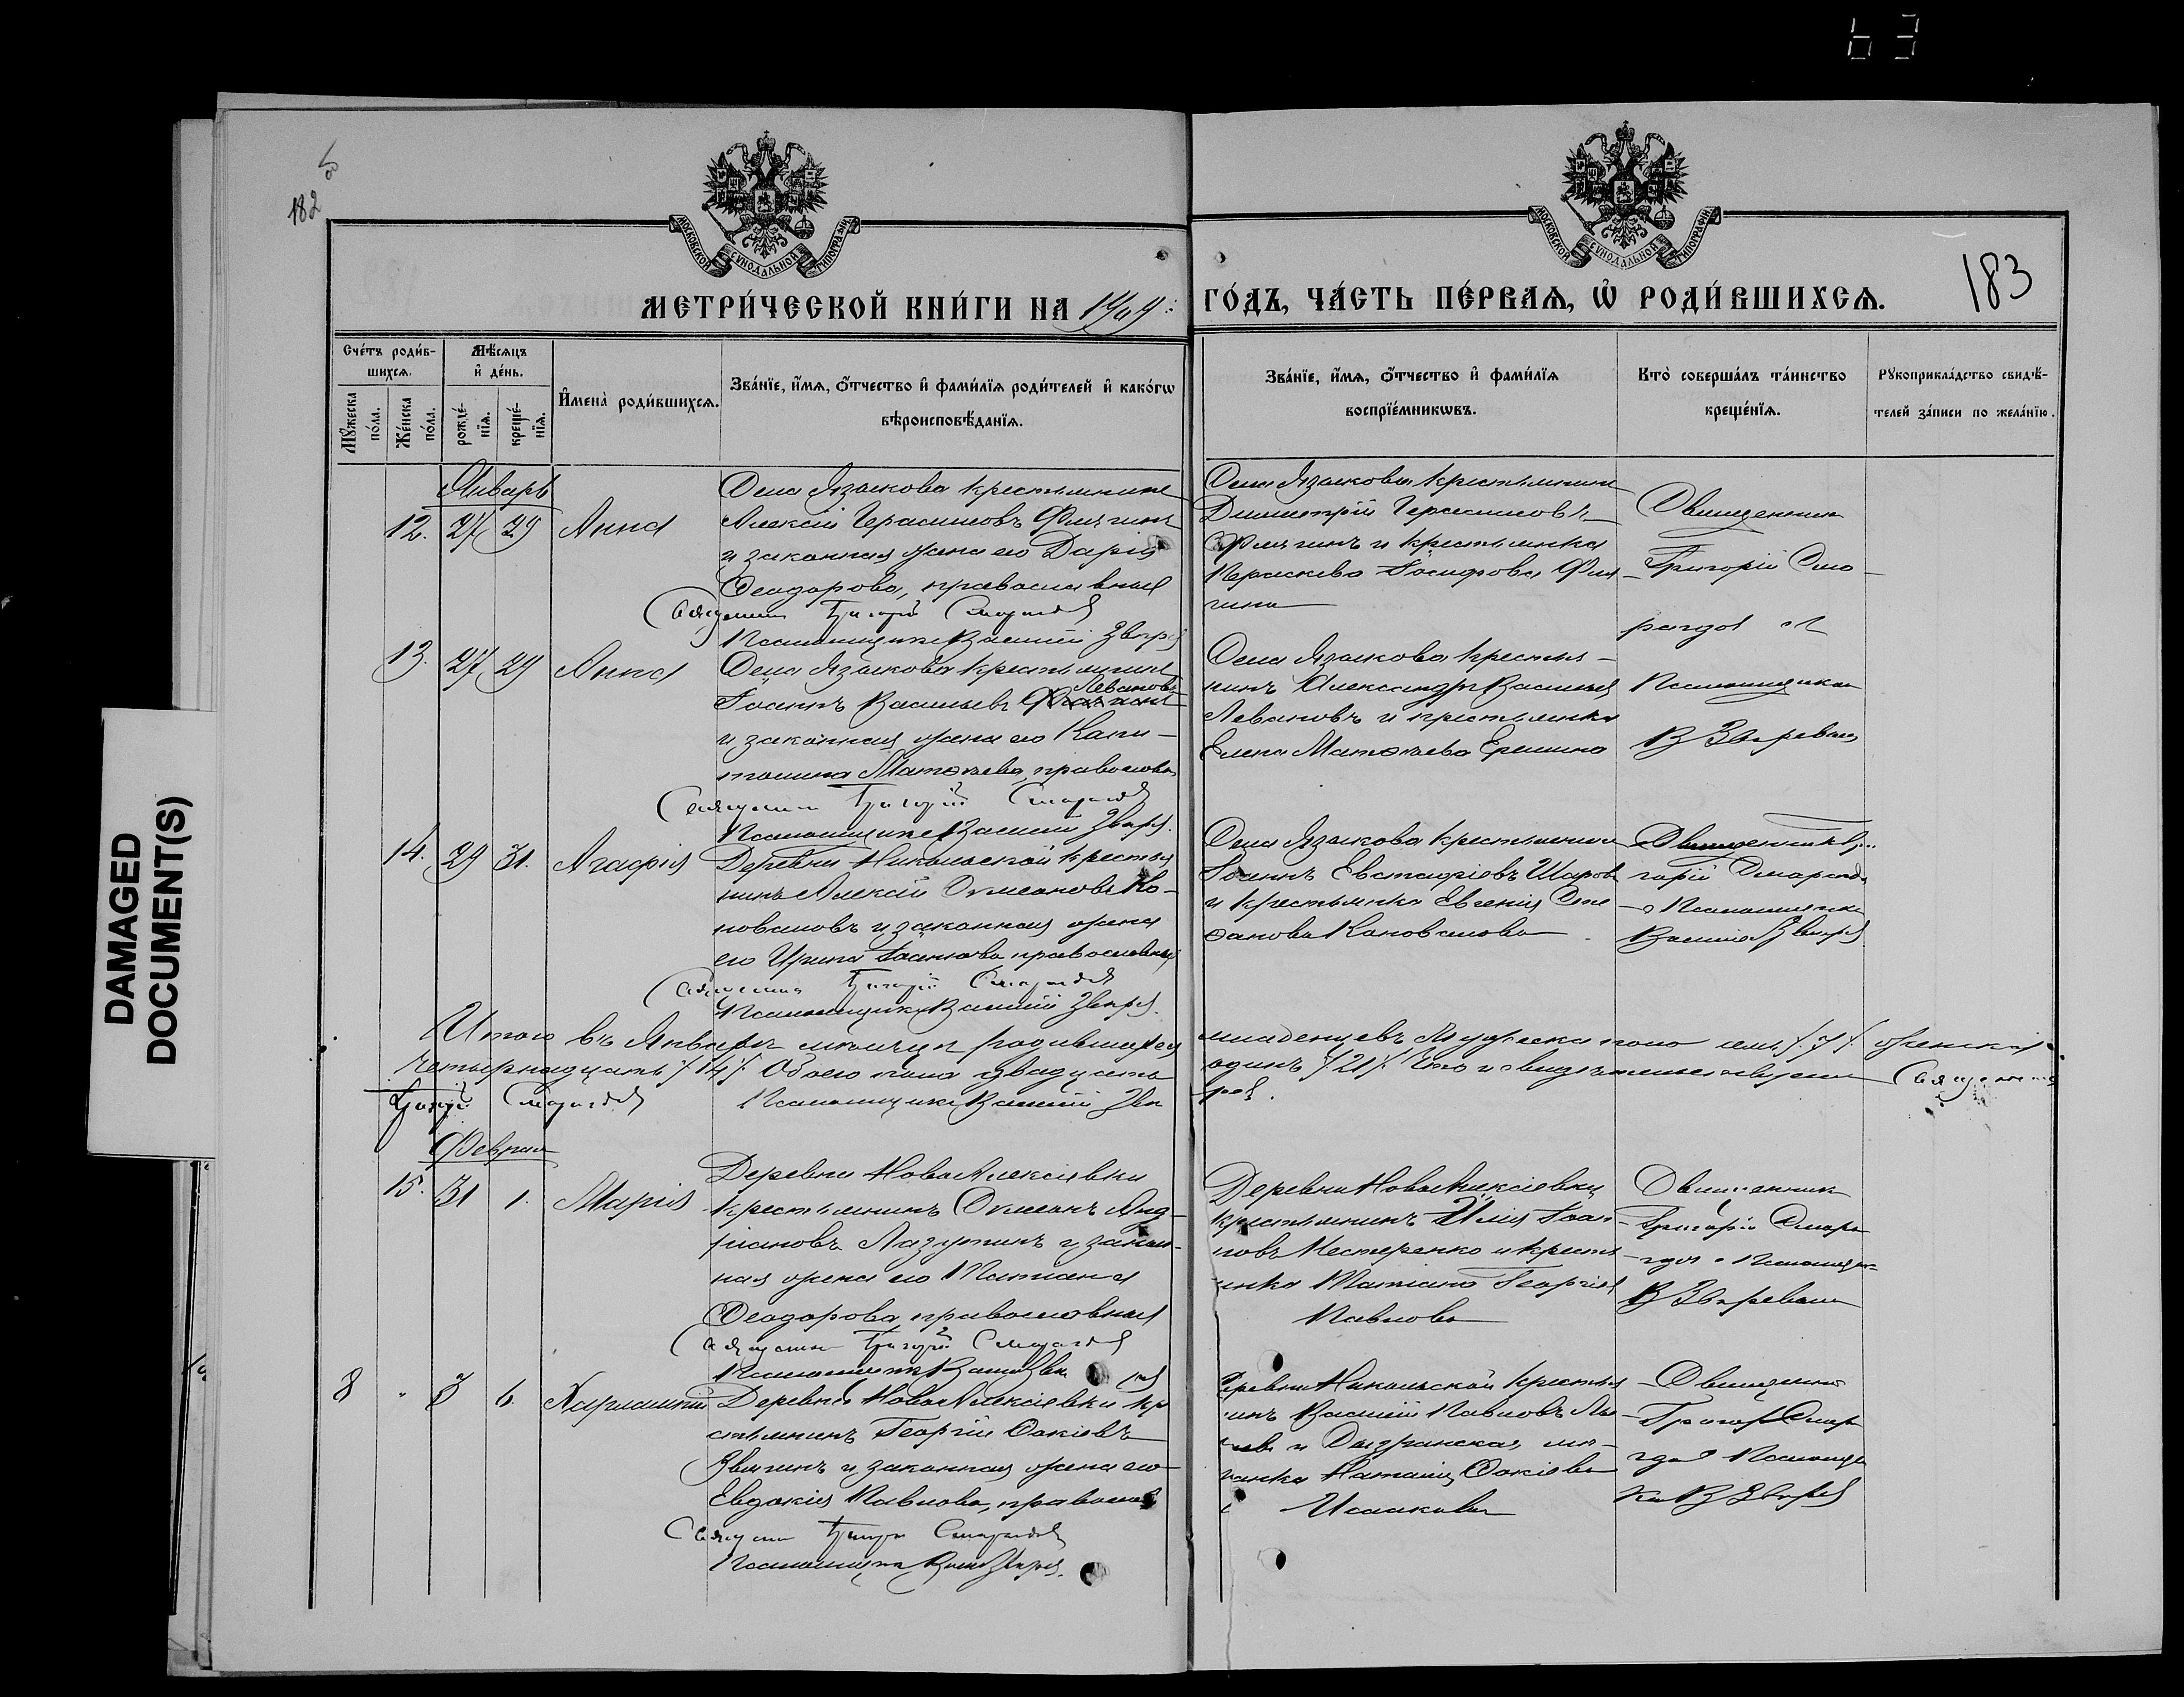 63
182
МОСКОВСКОЙ СѴНОДАЛЬНОЙ ТИПОГРАФІИ
МОСКОВСКОЙ СѴНОДАЛЬНОЙ ТИПОГРАФІИ
183
МЕТРИ́ЧЕСКОЙ КНИ́ГИ НА 1909: ГО́ДЪ, ЧА́СТЬ ПЕ́РВАѦ, Ѡ РОДИ́ВШИХСѦ.
Сче́тъ роди́в-
шихсѧ.
Мꙋ́жеска по́ла.
Же́нска по́ла.
Мѣ́сѧцъ
и҆ де́нь.
рожде́-
нїѧ.
креще́-
нїѧ.
И҆мена̀ роди́вшихсѧ.
Зва́нїе, и҆́мѧ, ѻ҆́тчество и҆ фами́лїѧ роди́телей и҆ како́гѡ
вѣроисповѣ́данїѧ.
Зва́нїе, и҆́мѧ, ѻ҆́тчество и҆ фами́лїѧ
воспрїе́мникѡвъ.
Кто̀ соверша́лъ та́инство
креще́нїѧ.
Рꙋкоприкла́дство свидѣ́-
телей за́писи по жела́нїю.
Январь
12. 27 29 Анна
Села Языкова крестьянинъ
Алексій Герасимовъ
и законная жена его Дарія
Ѳеодорова, православные
Священникъ Григорій Смарагдовъ
Псаломщикъ Василій Звѣревъ
Села Языкова крестьянинъ
Димитрій Герасимовъ
и крестьянка
Параскева Іосифова
Священникъ
Григорій Сма-
рагдовъ
Псаломщикъ
В Звѣревъ
13. 27 29 Анна
Села Языкова крестьянинъ
Іоаннъ Васильевъ Левановъ
и законная жена его Капи-
толина Матѳеева, православн
Священникъ Григорій Смарагдовъ
Псаломщикъ Василій Звѣрев.
Села Языкова крестья-
нинъ Александръ Васильев
Левановъ и крестьянка
Елена Матѳеева Еремина
14. 29 31. Агафія
Деревни Никольской крестья
нинъ Алексій Стефановъ Ко-
новаловъ и законная жена
его Ирина Іоаннова православные
Священникъ Григорій Смарагдовъ
Псаломщикъ Василій Звѣрев.
Села Языкова крестьянинъ
Іоаннъ Евстафіевъ Шаровъ
и крестьянка Евгенія Сте
фанова Коновалова
Священникъ Гри
горій Смарагдовъ
Псаломщикъ
Василій Звѣрев
Итого въ Январѣ мѣсяцѣ родившихся младенцевъ Мужеска пола семь /7/ женска
четырнадцать /14/ Обоего пола двадцать одинъ /21/ Что и свидѣтельствуемъ Священникъ
Григорій Смарагдовъ Псаломщикъ Василій Звѣ
рев.
Февраль
15. 31 1. Марія
Деревни НовоАлексіевки
крестьянинъ Стефанъ Анд-
ріановъ Лазуткинъ и закон-
ная жена его Татіана
Ѳеодорова, православные
Священникъ Григорій Смарагдовъ
Деревни НовоАлексіевки
крестьянинъ Илія Іоан-
новъ Нестеренко и кресть
янка Татіана Георгіев
Павлова
Священникъ
Григорій Смара
гдовъ и Псаломщик
В Звѣревъ
8 3 6. Харлампій
Деревни НовоАлексіевки кр
стьянинъ Георгій Ѳокіевъ
Звягинъ и законная жена его
Евдокія Павлова, православн
Священникъ Григорій Смарагдовъ
Псаломщикъ Василій Звѣрев.
Деревни Никольской крестья
нинъ Василій Павловъ
и Сызранская мѣ-
щанка Наталія Ѳокіева
Исакова
Священникъ
Григорій Смара
гдовъ Псаломщи
къ В Звѣрев
DAMAGED
DOCUMENT(S)